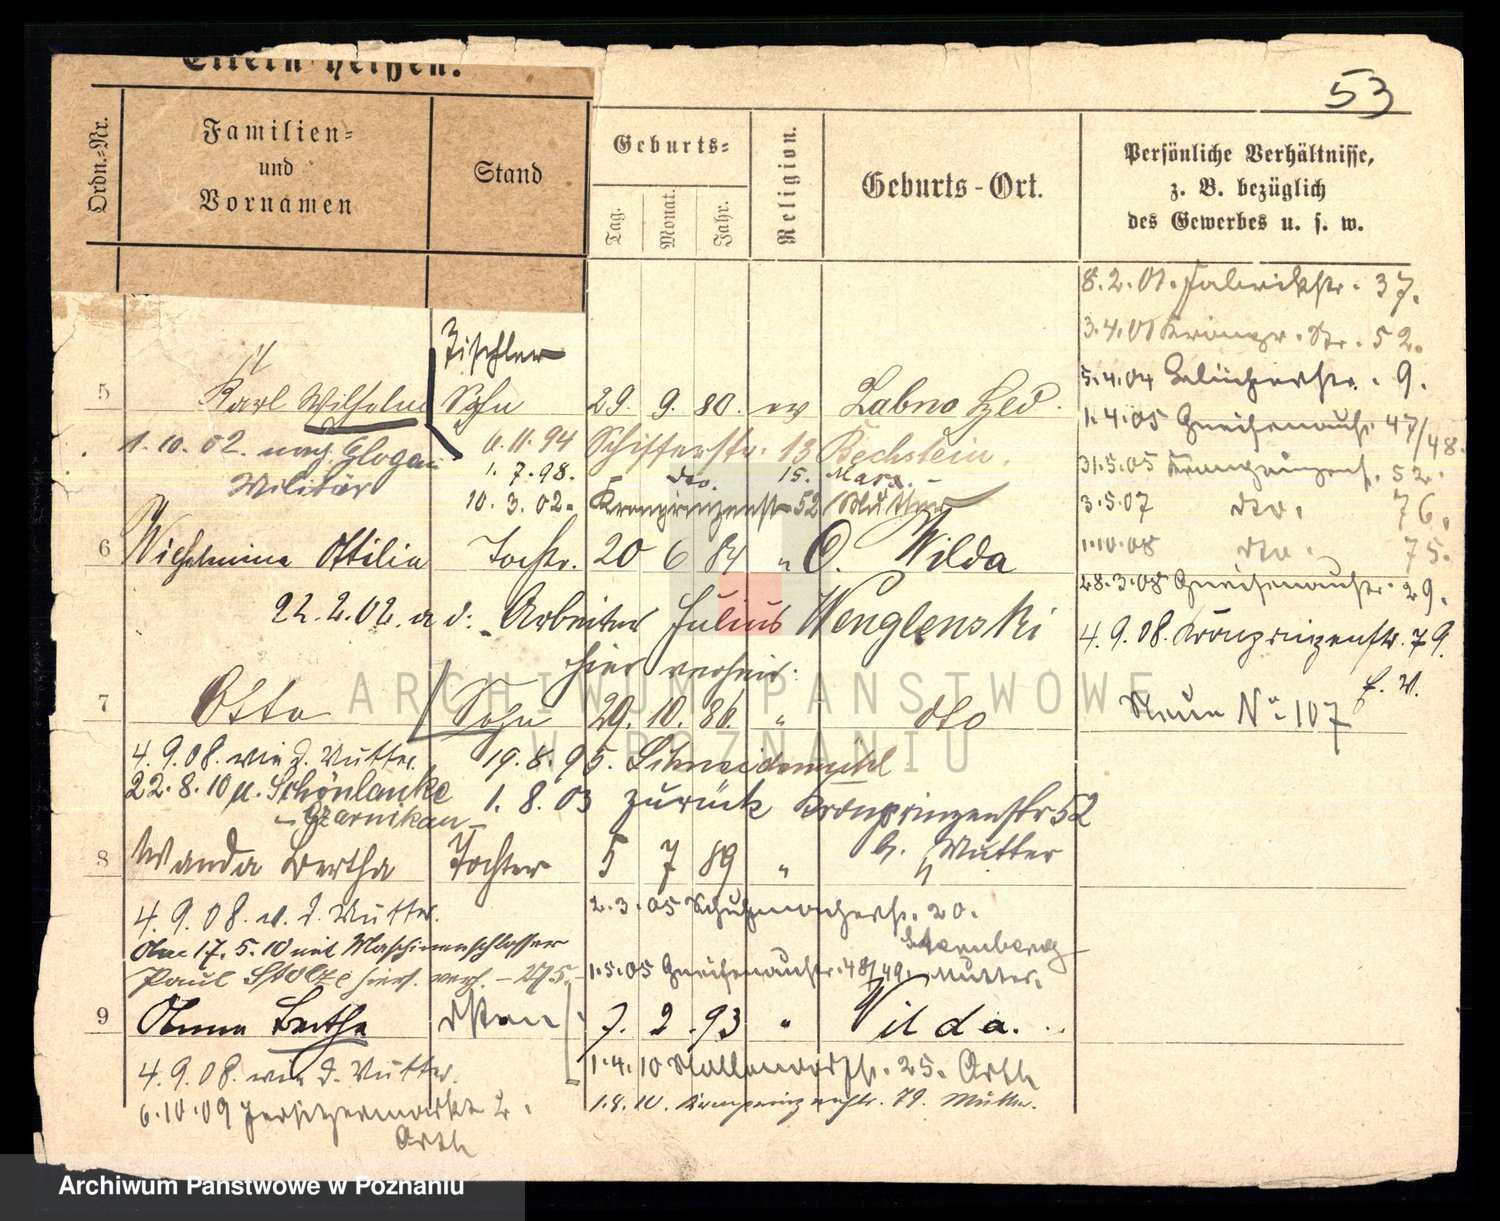 53
Eltern heißen.
Ordn.-Nr.
Familien-
und
Vornamen
Stand
Geburts-
Tag.
Monat.
Jahr.
Religion.
Geburts-Ort.
Persönliche Verhältnisse,
z. B. bezüglich
des Gewerbes u. s. w.
8.2.01. Fabrikstr. 37.
3.4.01 Kronpr. Str. 52.
5.4.04 Blücherstr. 9.
1.4.05 Gneisenaustr. 47/48.
31.5.05 Kronprinzenstr. 52.
3.5.07 dto. 76.
1.10.08 dto. 75.
28.3.08 Gneisenaustr. 29.
4.9.08. Kronprinzenstr. 79.
f. W.
Neue No 107
Tischler
5 Karl Wilhelm Sohn 29. 9. 80. ev Labno
1.10.02. nach Glogau
Militär
6.11.94 Schifferstr. 13 Bechstein.
1.7.98. dto. 15. Marx.
10.3.02. Kronprinzenstr 52 / Mutter
6 Wilhelmine Ottilie Tochtr. 20 6 84 " O. Wilda
22.2.02. a d. Arbeiter Julius Wenglenski
hier verheir.
7 Otto Sohn 29. 10. 86. " dto
4.9.08. wie d. Mutter.
22.8.10 n. Schönlanke
- Czarnikau -
19.8.95. Schneidemühl
1.8.03 zurück Kronprinzenstr 52
b. Mutter
8 Wanda Bertha Tochter 5 7 89 "
4.9.08. w. d. Mutter.
Am 17.5.10 mit Maschinenschlosser
Paul Stolze hier verh. - 275 -
2.3.05 Schuhmacherstr. 20.
Sternberg
1.5.05 Gneisenaustr. 48/49. Mutter.
9 Anna Bertha 7. 2. 93 " Wilda.
4.9.08. wie d. Mutter.
6.10.09 Jersitzermarkt 2.
1.4.10 25.
1.8.10. Kronprinzenstr. 79. Mutter.
ARCHIWUM PAŃSTWOWE
W POZNANIU
Archiwum Państwowe w Poznaniu